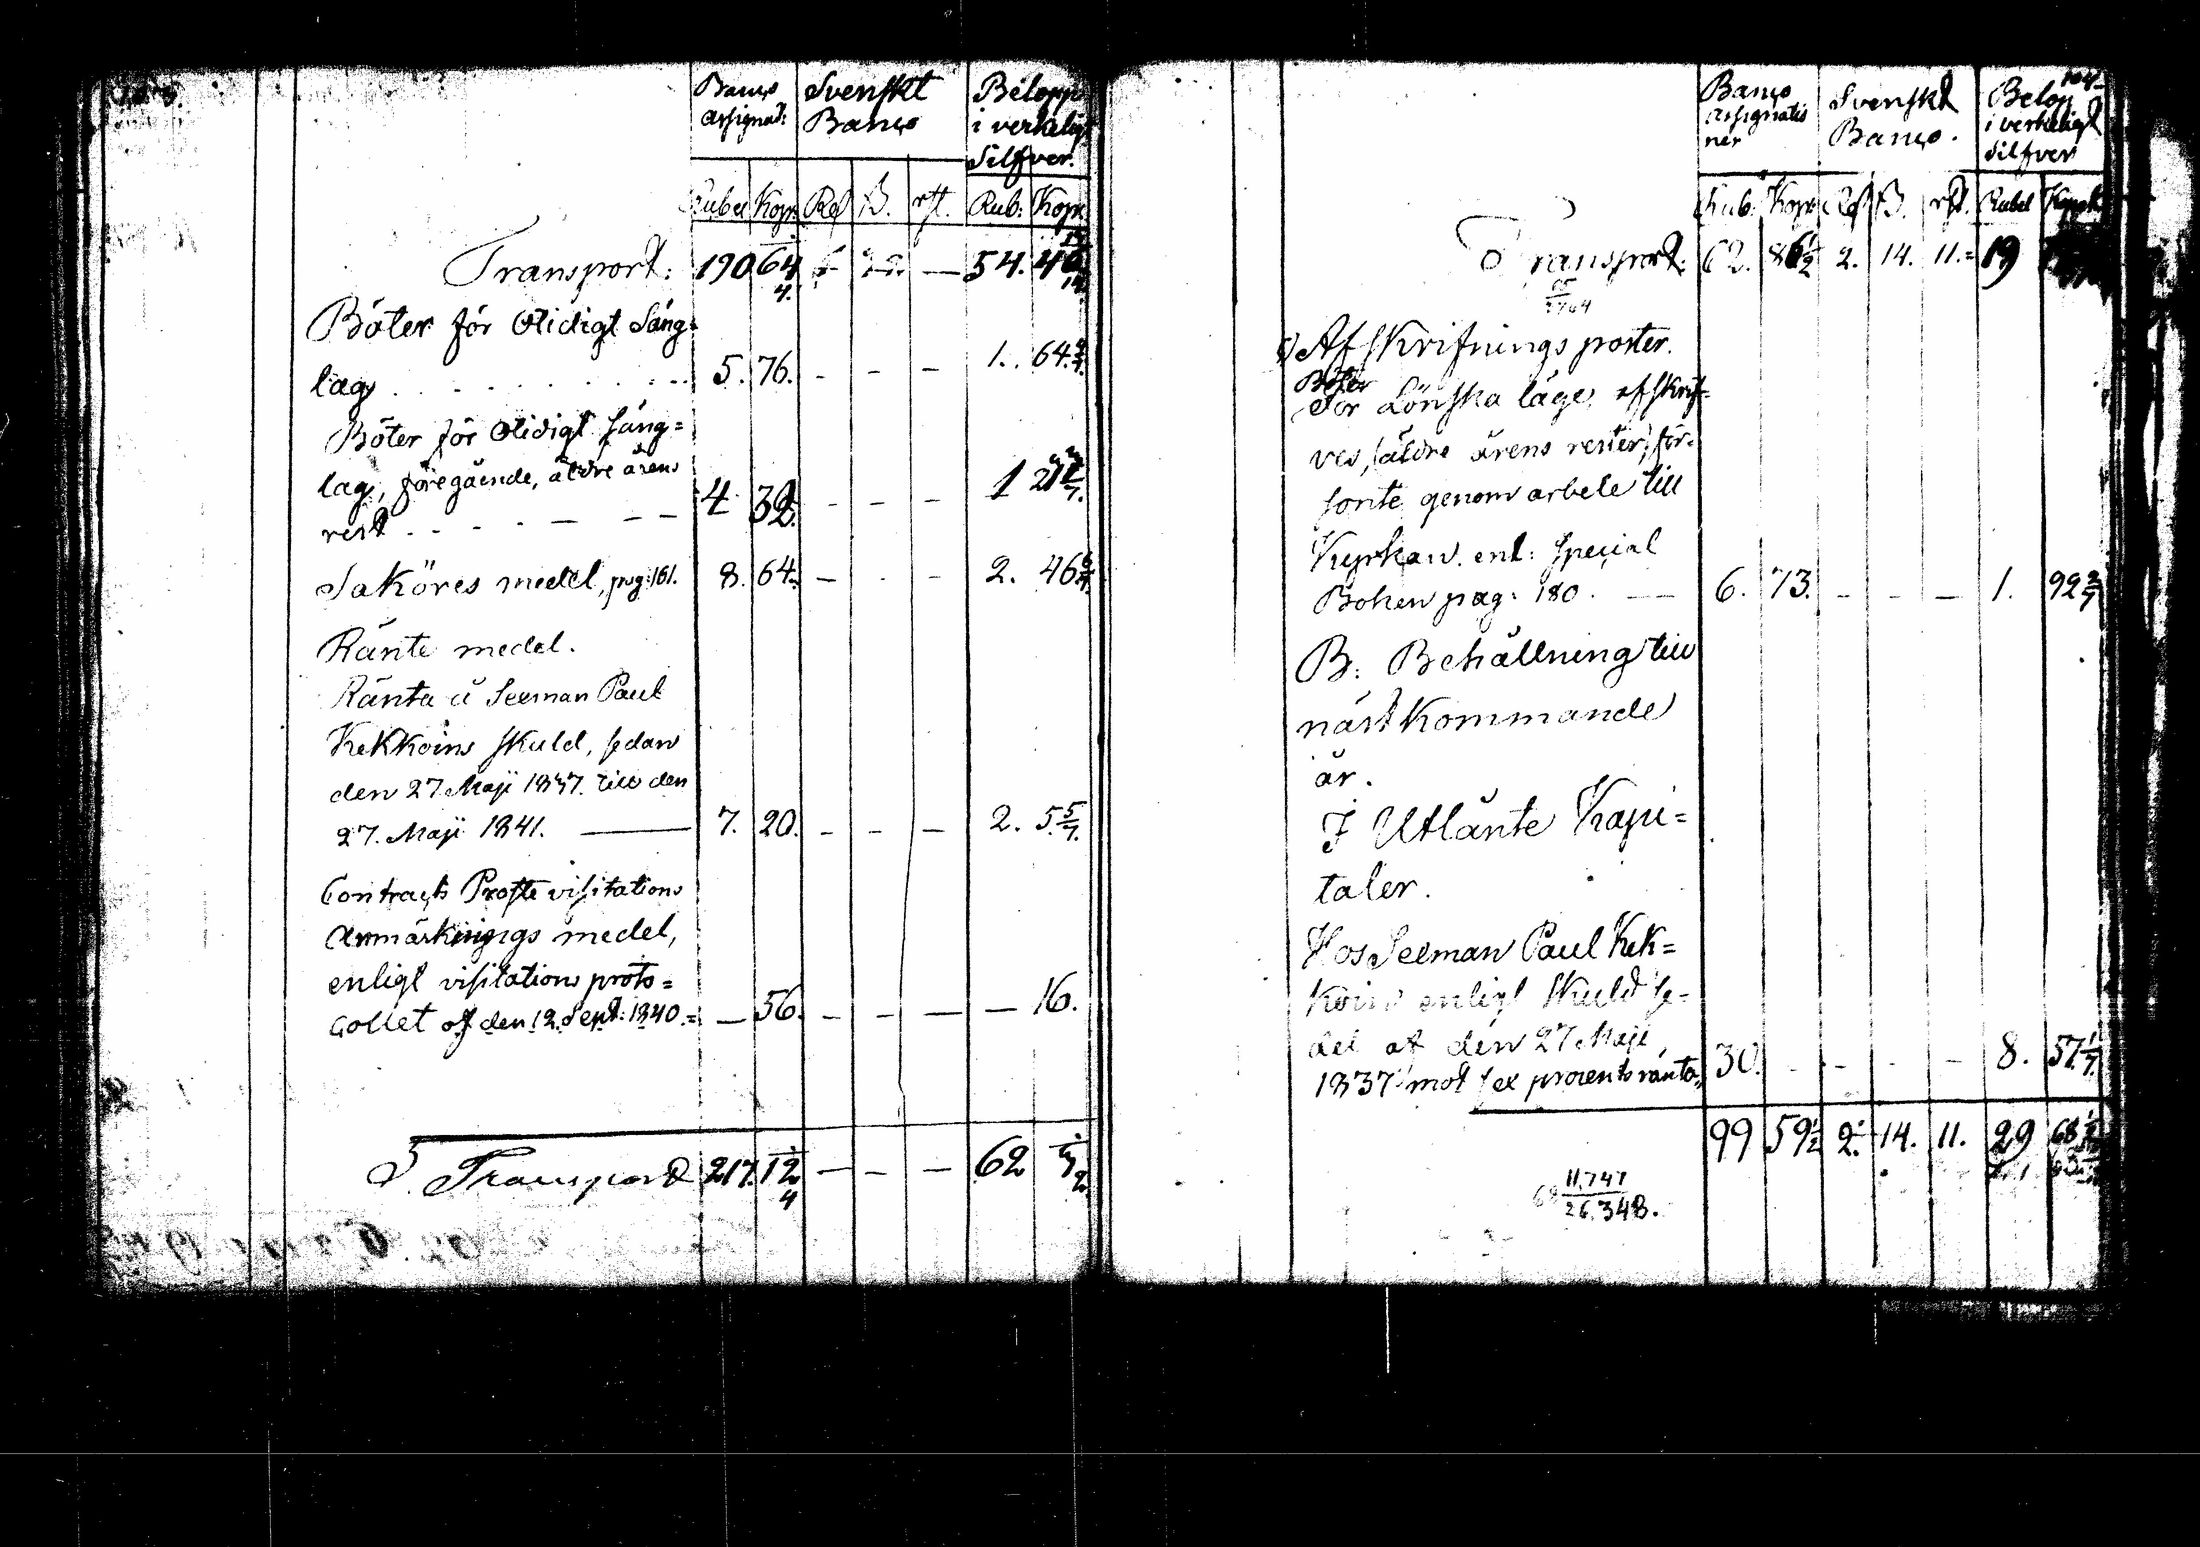 Banco Assignat: Svenskt Banco Belopp i verkeligt Silfver.
Rubel Kop: Rd ß. rst. Rub: Kop:
Transport: 190 64 — 54. 46
Böter för Otidigt Säng=
lag . . . . . . . . 5. 76. - - - 1. 64 2/7.
Böter för Otidigt säng=
lag, föregående, äldre årens
rest . . - - — — 4 32. - - - 1 21
Saköres medel, pag: 161. 8. 64. - - - 2. 46 6/7
Ränte medel.
Ränta å Seeman Paul
Kekkoins skuld, sedan
den 27 Maji 1837. till den
27. Maji 1841. — 7. 20. - - - 2. 5 5/7.
Contracts Proste visitations
Anmärknings medel,
enligt visitations proto=
collet af den 12. Sept: 1840.= — 56. - - — — 16.
Transport 217. 12 — — — 62
104
Banco Assignatio ner Svenskt Banco. Belop i verkeligt Silfver
Rub: Kop: Rd ß. rst. Rubel Kopek
Transport: 62. 86 1/2 2. 14. 11.= 19
Afskrifnings poster.
Böter
För Lönska läge, afskrif=
ves, (äldre årens rester,) för=
sonte genom arbete till
Kyrkan. enl: Special
Boken pag: 180. — 6. 73. - - — 1. 92 2/7
B: Behållning till
nästkommande
år.
I Utlånte Kapi=
taler.
Hos Seeman Paul Kek=
koins enligt Skuld se=
del af den 27 Maji
1837 mot sex procents ränta, 30. - - - — 8. 57 1/7.
99 59 1/2 2. 14. 11. 29 68
11,747
26,348.